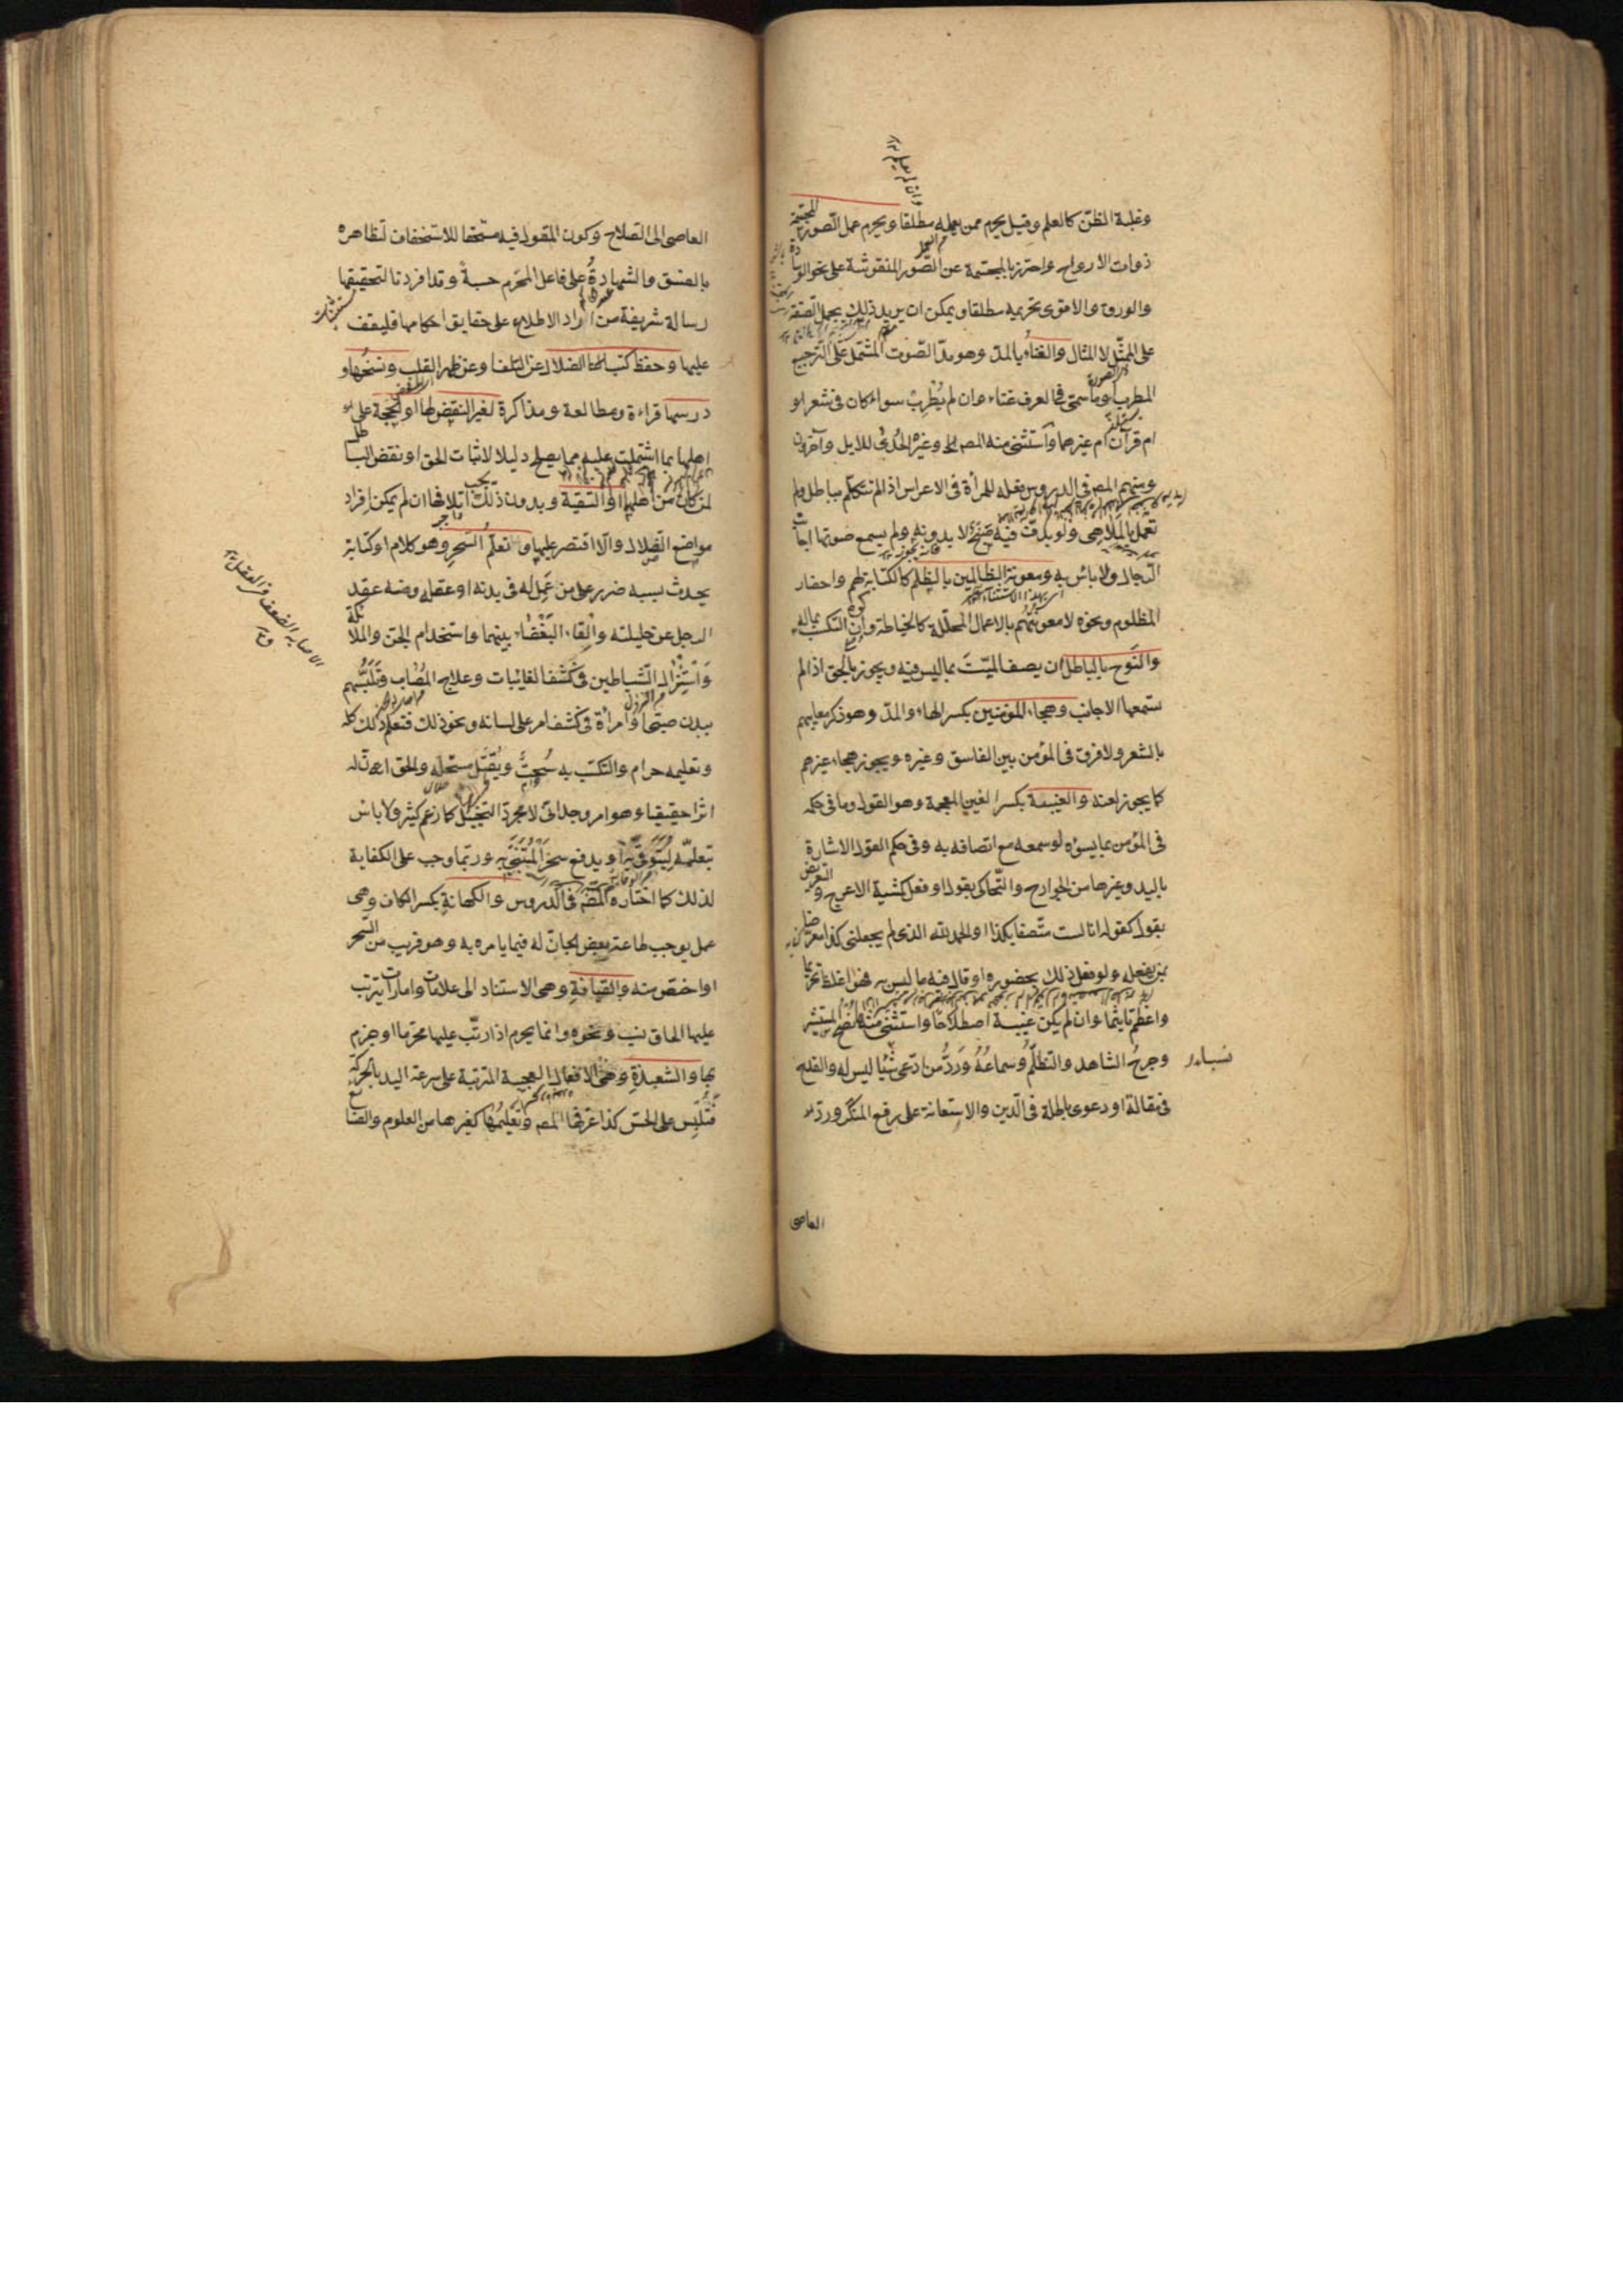 وغلبة الظن كالعلم وقيل يحرم ممن يعمله مطلقا ويحرم عمل الصور المجسمة
ذوات الارواح واحترز بالمجسمة عن الصور المنقوشة على نحو الوسادة
والورق والاقوى تحريمه مطلقا ويمكن ان يريد ذلك بحمل الصفة
على الممثل لا المثال والغناء بالمد وهو مد الصوت المشتمل على الترجيع
المطرب او ما سمى فى العرف غناء وان لم يطرب سواء كان فى شعر او
ام قرآن ام غيرهما واستثنى منه المص وغيره الحدى للابل وآخرون
ومنهم المص فى الدروس فعله للمرأة فى الاعراس اذا لم تتكلم بباطل ولم
تعمل بالملاهى ولو بدف فيه صنج لا بدونه ولم يسمع صوتها اجانب
الرجال ولا باس به ومعونة الظالمين بالظلم كالكتابة لهم واحضار
المظلوم ونحوه لا معونتهم بالاعمال المحللة كالخياطة وان كره التكسب بماله
والنوح بالباطل بان يصف الميت بما ليس فيه ويجوز بالحق اذا لم
تسمعها الاجانب وهجاء المؤمنين بكسر الهاء والمد وهو ذكر معايبهم
بالشعر ولا فرق فى المؤمن بين الفاسق وغيره ويجوز هجاء غيرهم
كما يجوز لعنه والغيبة بكسر الغين المعجمة وهو القول وما فى حكمه
فى المؤمن بما يسوءه لو سمعه مع اتصافه به وفى حكم القول الاشارة
باليد وغيرها من الجوارح والتحاكى بقول او فعل كمشية الاعرج والتعريض
بقول كقوله انا لست متصفا بكذا او الحمد لله الذى لم يجعلنى كذا معرضا
بمن يفعله ولو فعل ذلك بحضوره او قال فيه ما ليس به فهو اغلظ تحريما
واعظم تاثيما وان لم يكن غيبة اصطلاحا واستثنى منها نصح المستشير
وجرح الشاهد والتظلم وسماعه ورد من ادعى نسبا ليس له والقدح
فى مقالة او دعوى باطلة فى الدين والاستعانة على رفع المنكر ورد
العاصى
العاصى الى الصلاح وكون المقول فيه مستحقا للاستخفاف لتظاهره
بالفسق والشهادة على فاعل المحرم حسبة وقد افردنا لتحقيقها
رسالة شريفة من اراد الاطلاع على حقايق احكامها فليقف
عليها وحفظ كتب الضلال عن التلف او عن ظهر القلب ونسخها و
درسها قراءة ومطالعة ومذاكرة لغير النقض لها او الحجة على
اهلها بما اشتملت عليه مما يصلح دليلا لاثبات الحق او نقض الباطل
لمن كان من اهلها او التقية وبدون ذلك يجب اتلافها ان لم يمكن افراد
مواضع الضلال والا اقتصر عليها وتعلم السحر وهو كلام او كتابة
يحدث بسببه ضرر على من عمل له فى بدنه او عقله ومنه عقد
الرجل عن حليلته والقاء البغضاء بينهما واستخدام الجن والملائكة
واستنزال الشياطين فى كشف الغائبات وعلاج المصاب وتلبسهم
ببدن صبى او امرأة فى كشف امر على لسانه ونحو ذلك فتعلم ذلك كله
وتعليمه حرام والتكسب به سحت ويقتل مستحله والحق ان له
اثرا حقيقيا وهو امر وجدانى لا مجرد التخييل كما زعم كثير ولا باس
بتعلمه ليتوقى به او يدفع سحر المتنبى به وربما وجب على الكفاية
لذلك كما اختاره المص فى الدروس والكهانة بكسر الكاف وهى
عمل يوجب طاعة بعض الجان له فيما يامره به وهو قريب من السحر
او اخص منه والقيافة وهى الاستناد الى علامات وامارات يترتب
عليها الحاق نسب ونحوه وانما يحرم اذا رتب عليها محرما او جزم
بها والشعبذة وهى الافعال العجيبة المترتبة على سرعة اليد بالحركة
فتلبس على الحس كذا عرفها المص وتعليمها كغيرها من العلوم والصنائع